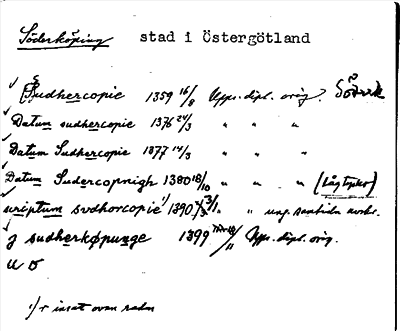 Söderköping stad i Östergötland
Sudhercopie 1359 16/8 Upps. dipl. orig.
Datum sudhercopie 1376 24/3 " " "
Datum Sudhercopie 1377 14/3 " " "
Datum Sudercopnigh 1380 18/10 " " "
scriptum svdhorcopie 1) 1390 " "
j sudherkøpunge 1399 Upps. dipl. orig.
u o
1) r insat ovan raden